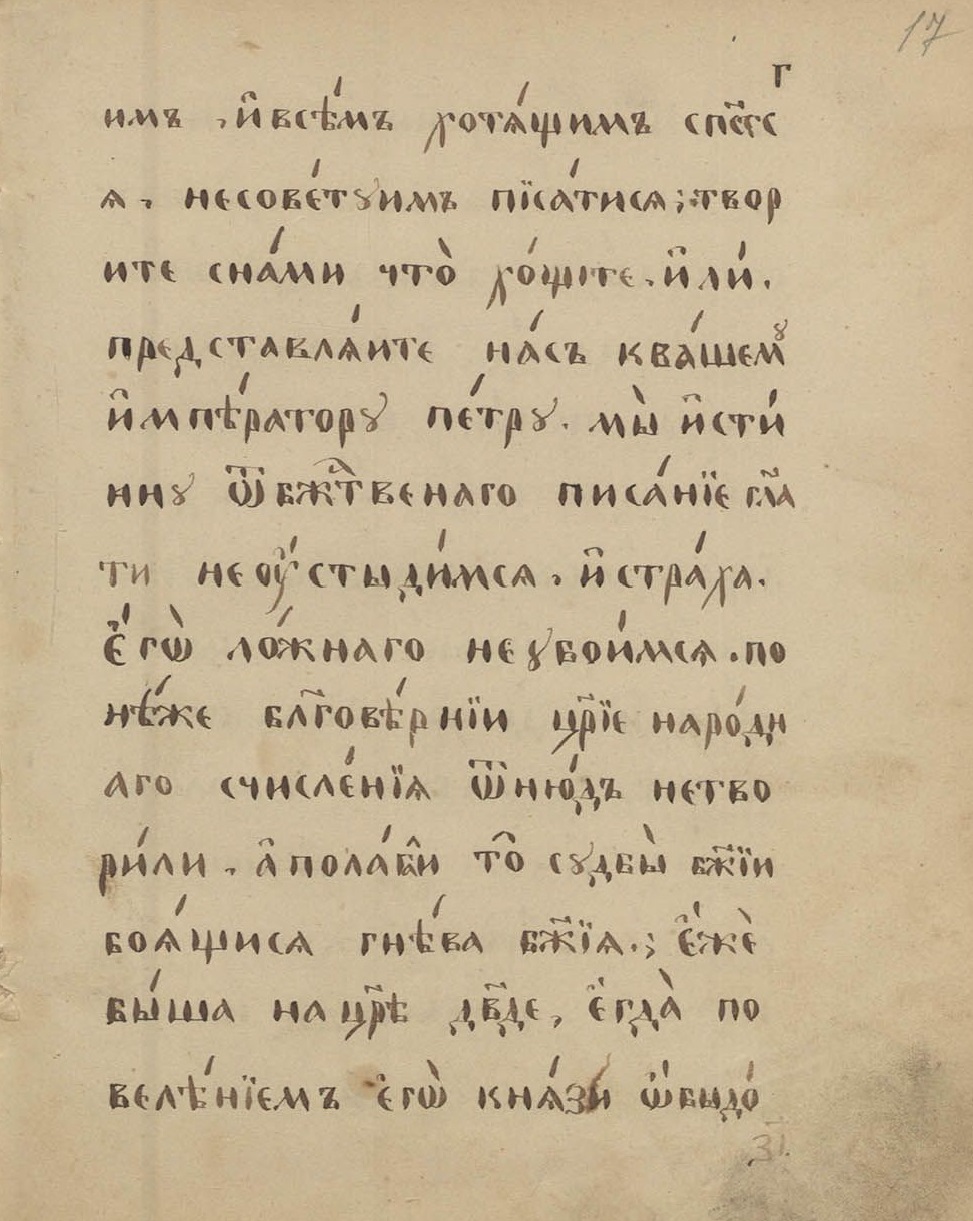 17
г
имъ , и҆ всѣ́мъ хотѧ́щимъ сп҃сѐс
ѧ , несове́тꙋимъ пїса́тисѧ ; твор
ите сна́ми что̀ хо́щіте . и҆ ли́ .
представлѧ́ите на́съ ква́шемꙋ
и҆мпѣ́раторꙋ пе́трꙋ . мы̀ и҆сти́
ннꙋ ѿ бж҃твенаго писа́нїе гл҃а
ти не оу҆́стыди́мсѧ , и҆ стра́ха .
є҆́гѡ̀ ло́жнаго не ꙋбои́мсѧ . по
нѣ́же бл҃говѣ́рнїи цр҃їе наро́дн
аго счисле́нїѧ ѿню́дъ нетво
ри́ли , а҆ пола́г̾аи то̑ сꙋдбы̀ бж҃їи
боѧ́щисѧ гнѣ́ва бж҃їѧ . ; є҆́жѐ
бы́ша на цр҃ѣ дв҃де , є҆гда̀ по
велѣ́нїемъ є҆гѡ̀ кнѧ́зи́ ѡ҆́быдо́
з҃і .